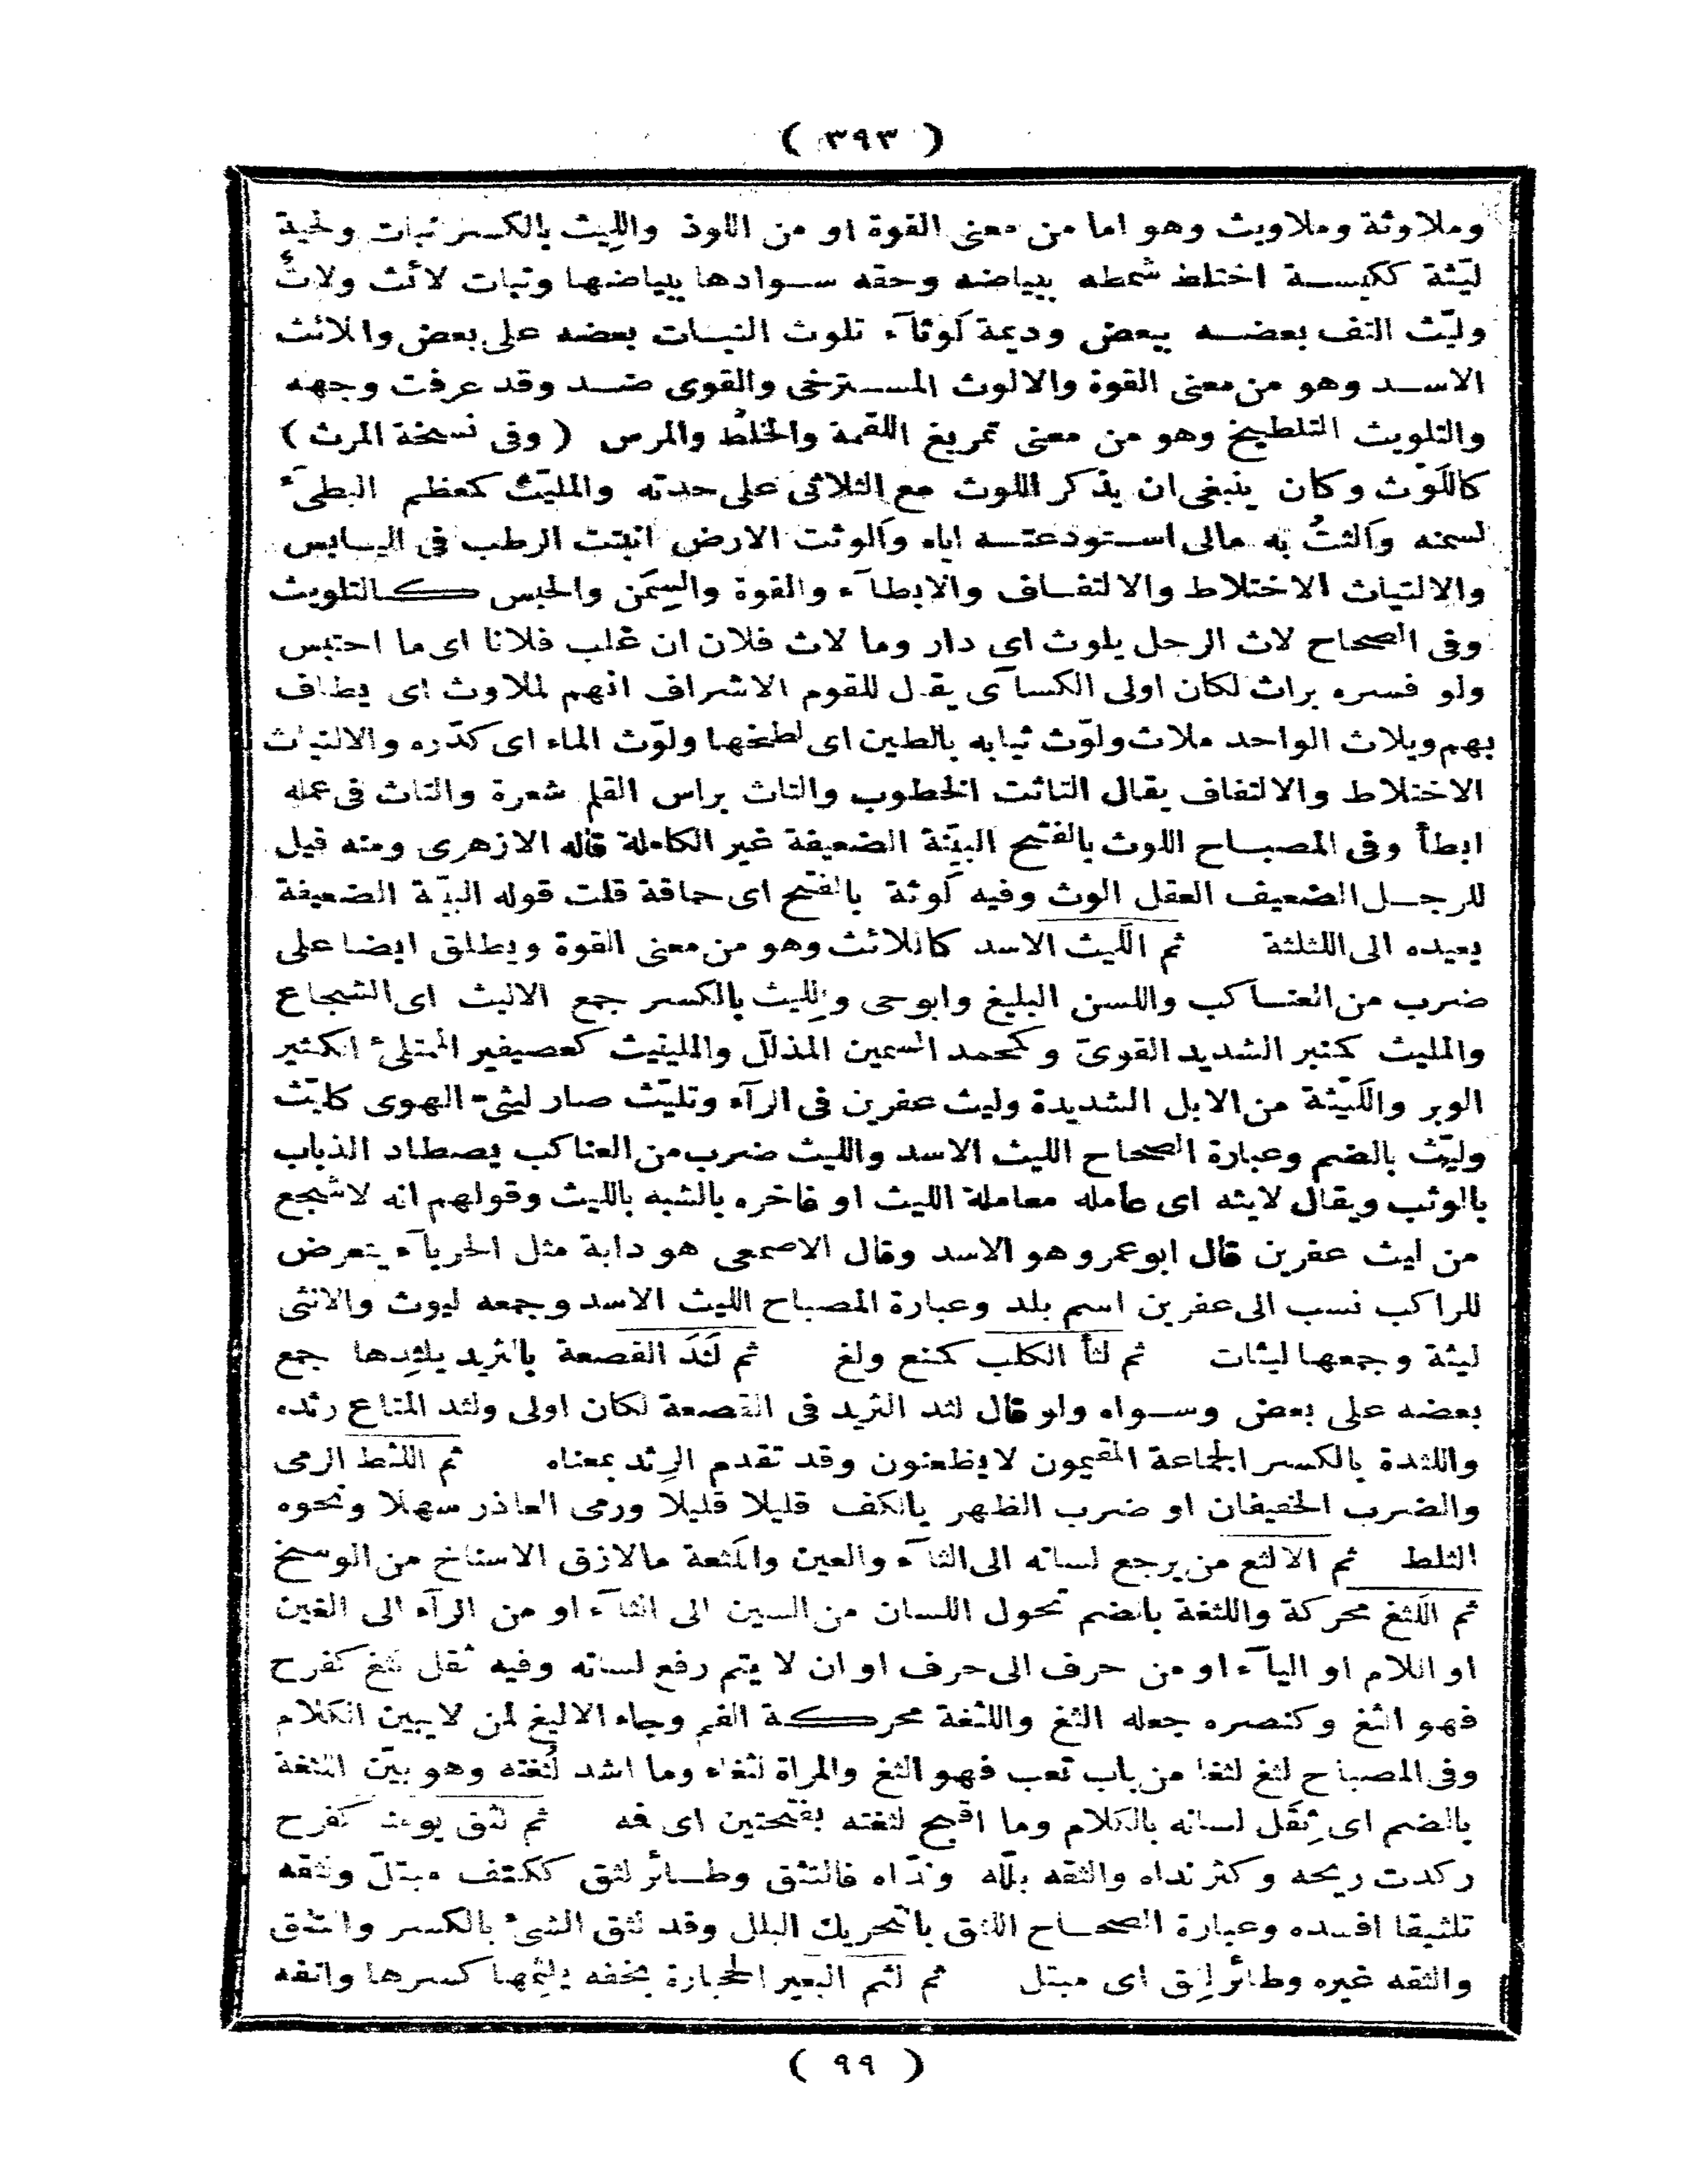 ( ٣٩٣ )
وملاوثة وملاويث وهو اما من معنى القوة او من اللوذ والليث بالكسر نبات ولحية
ليّثة ككيسة اختلط شمطه ببياضه وحقه سوادها ببياضها ونبات لائث ولاثٌ
وليّث التف بعضه ببعض وديمة لَوثآء تلوث النبات بعضه على بعض واللائث
الاسد وهو من معنى القوة والالوث المسترخى والقوى ضد وقد عرفت وجهه
والتلويث التلطيخ وهو من معنى تمريغ اللقمة والخلطُ والمرس ( وفى نسخة المرث )
كاللَوْث وكان ينبغى ان يذكر اللوث مع الثلاثى على حدته والمليّث كمعظم البطىء
لسمنه وأَلثتُ به مالى استودعته اياه وألوثت الارض انبتت الرطب فى اليابس
والالتياث الاختلاط والالتفاف والابطآء والقوة والسِمَن والحبس كالتلويث
وفى الصحاح لاث الرجل يلوث اى دار وما لاث فلان ان غلب فلانا اى ما احتبس
ولو فسره براث لكان اولى الكسآى يقال للقوم الاشراف انهم لملاوث اى يطاف
بهم ويلاث الواحد ملاث ولوّث ثيابه بالطين اى لطخها ولوّث الماء اى كدّره والالتياث
الاختلاط والالتفاف يقال التاثت الخطوب والتاث براس القلم شعرة والتاث فى عمله
ابطأ وفى المصباح اللوث بالفتح البيّنة الضعيفة غير الكاملة قاله الازهرى ومنه قيل
للرجل الضعيف العقل الوث وفيه لَوثة بالفتح اى حاقة قلت قوله البيّنة الضعيفة
يعيده الى اللثلثة ثم اللَيث الاسد كاللائث وهو من معنى القوة ويطلق ايضا على
ضرب من العناكب واللسن البليغ وابوحى والليث بالكسر جمع الاليث اى الشجاع
والمليث كمنبر الشديد القوىّ وكمحمد السمين المذلل والمليثيث كعصيفير الممتلئ الكثير
الوبر واللَيّثة من الابل الشديدة وليث عفرين فى الرآء وتليّث صار ليثىّ الهوى كليّث
وليّث بالضم وعبارة الصحاح الليث الاسد والليث ضرب من العناكب يصطاد الذباب
بالوثب ويقال لايثه اى عامله معاملة الليث او فاخره بالشبه بالليث وقولهم انه لاشجع
من ليث عفرين قال ابوعمرو هو الاسد وقال الاصمعى هو دابة مثل الحربآء يتعرض
للراكب نسب الى عفرين اسم بلد وعبارة المصباح الليث الاسد وجمعه ليوث والانثى
ليثة وجمعها ليثات ثم لثأ الكلب كمنع ولغ ثم لَثَدَ القصعة بالثريد يلثِدها جمع
بعضه على بعض وسواه ولو قال لثد الثريد فى القصعة لكان اولى ولثد المتاع رثده
واللثدة بالكسر الجماعة المقيمون لا يظعنون وقد تقدم الرِثد بمعناه ثم اللثط الرمى
والضرب الخفيفان او ضرب الظهر بالكف قليلا قليلا ورمى العاذر سهلا ونحوه
الثلط ثم الالثع من يرجع لسانه الى الثآء والعين واللثعة مالازق الاسناخ من الوسخ
ثم اللَثغ محركة واللثغة بالضم تحول اللسان من السين الى الثآء او من الرآء الى الغين
او اللام او اليآء او من حرف الى حرف او ان لا يتم رفع لسانه وفيه ثقل لثغ كفرح
فهو الثغ وكنصره جعله الثغ واللثغة محركة الفم وجاء الاليغ لمن لا يبين الكلام
وفى المصباح لثغ لثغا من باب تعب فهو الثغ والمراة لثغاء وما اشد لُثغته وهو بيّن اللثغة
بالضم اى ثِقَل لسانه بالكلام وما اقبح لثغته بفتحتين اى فه ثم لثق يومنا كفرح
ركدت ريحه وكثر نداه والثقه بلّله وندّاه فالتثق وطائر لثق ككتف مبتلّ ولثقه
تلثيقا افسده وعبارة الصحاح اللثق بالتحريك البلل وقد لثق الشئ بالكسر والتثق
والثقه غيره وطائر لثِق اى مبتل ثم لثم البعير الحجارة بخفه يلثِمها كسرها وانفه
( ٩٩ )